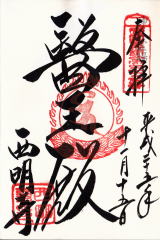 奉拝
平成二十五年
十一月十五日
醫王殿
西明寺